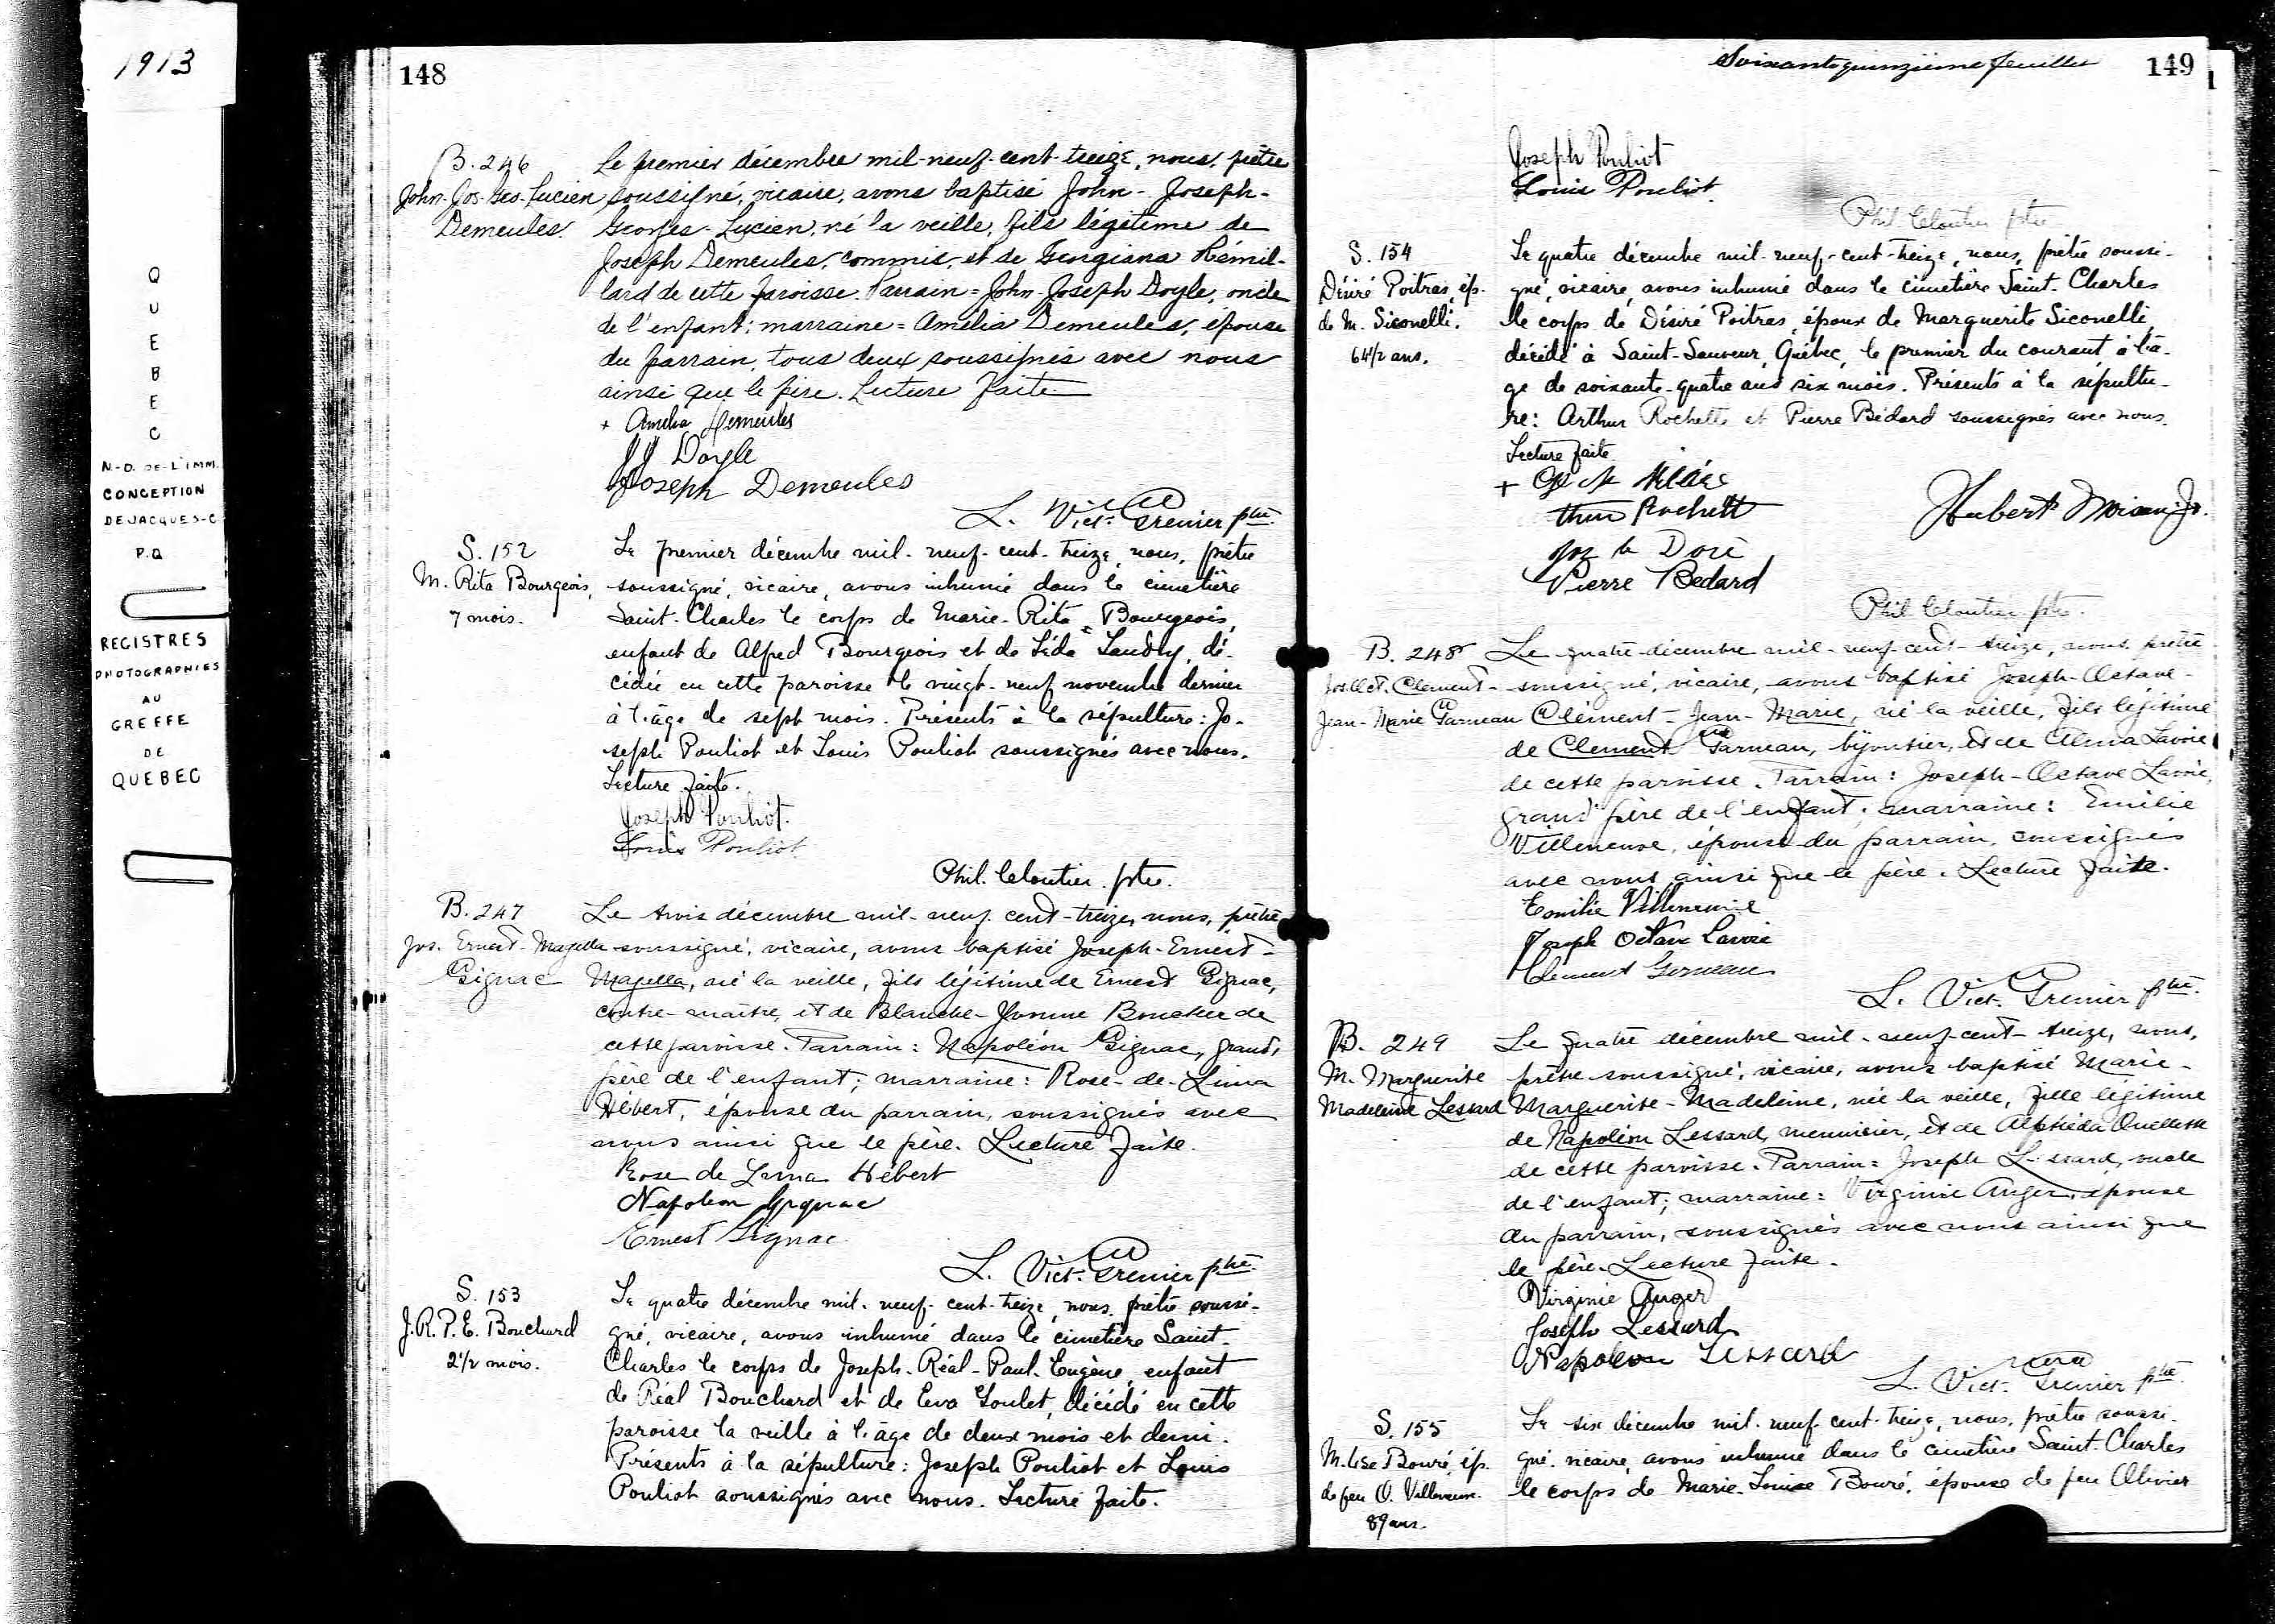 1913
QUEBEC
N-D. DE L'IMM.
CONCEPTION
DE JACQUES-C
P.Q
REGISTRES
PHOTOGRAPHIES
AU
GREFFE
DE
QUEBEC
148
B. 246
John-Jos-Geo-Lucien
Demeules.
Le premier décembre mil-neuf-cent-treize, nous, prêtre
soussigné, vicaire, avons baptisé John-Joseph-
Georges-Lucien, né la veille, fils légitime de
Joseph Demeules, commis, et de Georgiana Rémil-
lard de cette paroisse. Parrain = John-Joseph Doyle, oncle
de l'enfant; marraine = Amélia Demeules, épouse
du parrain, tous deux soussignés avec nous
ainsi que le père. Lecture faite
+ Amelia Demeules
JJ Doyle
Joseph Demeules
L. Vict. Grenier ptre.
S. 152
M. Rita Bourgeois,
7 mois.
Le premier décembre mil-neuf-cent-treize, nous, prêtre
soussigné, vicaire, avons inhumé dans le cimetière
Saint-Charles le corps de Marie-Rita Bourgeois,
enfant de Alfred Bourgeois et de Léda Landry, dé-
cédée en cette paroisse le vingt-neuf novembre dernier
à l'âge de sept mois. Présents à la sépulture: Jo-
seph Pouliot et Louis Pouliot soussignés avec nous.
Lecture faite.
Joseph Pouliot.
Louis Pouliot
Phil. Cloutier ptre.
B. 247
Jos. Ernest-Magella
Gignac
Le trois décembre mil-neuf-cent-treize, nous, prêtre
soussigné, vicaire, avons baptisé Joseph-Ernest-
Magella, né la veille, fils légitime de Ernest Gignac,
contre-maître, et de Blanche-Yvonne Boucher de
cette paroisse. Parrain: Napoléon Gignac, grand,
père de l'enfant; marraine: Rose-de-Lima
Hébert, épouse du parrain, soussignés avec
nous ainsi que le père. Lecture faite.
Rose de Lima Hébert
Napoleon Gignac
Ernest Gignac
L. Vict. Grenier ptre.
S. 153
J.R.P.E. Bouchard
2 1/2 mois.
Le quatre décembre mil-neuf-cent-treize, nous, prêtre soussi-
gné, vicaire, avons inhumé dans le cimetière Saint-
Charles le corps de Joseph-Réal-Paul-Eugène, enfant
de Réal Bouchard et de Eva Goulet, décédé en cette
paroisse la veille à l'âge de deux mois et demi.
Présents à la sépulture: Joseph Pouliot et Louis
Pouliot soussignés avec nous. Lecture faite.
Soixante quinzième feuillet
149
Joseph Pouliot
Louis Pouliot.
Phil Cloutier ptre
S. 154
Désiré Poitras, ép.
de M. Siconelli.
64 1/2 ans.
Le quatre décembre mil-neuf-cent-treize, nous, prêtre soussi-
gné, vicaire, avons inhumé dans le cimetière Saint-Charles
le corps de Désiré Poitras, époux de Marguerite Siconelli,
décédé à Saint-Sauveur, Québec, le premier du courant à l'â-
ge de soixante-quatre ans six mois. Présents à la sépultu-
re: Arthur Rochette et Pierre Bédard soussignés avec nous.
Lecture faite
Hubert Moisan Jr.
Pierre Bedard
Phil Cloutier ptre.
B. 248
Jos. Oct. Clement-
Jean-Marie Garneau
Le quatre décembre mil-neuf-cent-treize, nous, prêtre
soussigné, vicaire, avons baptisé Joseph-Octave-
Clément-Jean-Marie, né la veille, fils légitime
de Clement Garneau, bijoutier, et de Alma Lavoie
de cette paroisse. Parrain: Joseph-Octave Lavoie,
grand père de l'enfant; marraine: Emilie
Villeneuve, épouse du parrain, soussignés
avec nous ainsi que le père. Lecture faite.
Emilie Villeneuve
Joseph Octave Lavoie
Clement Garneau
L. Vict. Grenier ptre.
B. 249
M. Marguerite
Madeleine Lessard
Le quatre décembre mil-neuf-cent-treize, nous,
prêtre soussigné, vicaire, avons baptisé Marie-
Marguerite-Madeleine, née la veille, fille légitime
de Napoléon Lessard, menuisier, et de Alphéda Ouellette
de cette paroisse. Parrain = Joseph Lessard, oncle
de l'enfant; marraine: Virginie Anger, épouse
du parrain, soussignés avec nous ainsi que
le père. Lecture faite.
Virginie Auger
Joseph Lessard
Napoleon Lessard
L. Vict. Grenier ptre.
S. 155
M. Lse Bouré, ép.
de feu O. Villeneuve.
89 ans.
Le six décembre mil-neuf-cent-treize, nous, prêtre soussi-
gné, vicaire, avons inhumé dans le cimetière Saint-Charles
le corps de Marie-Louise Bouré, épouse de feu Olivier